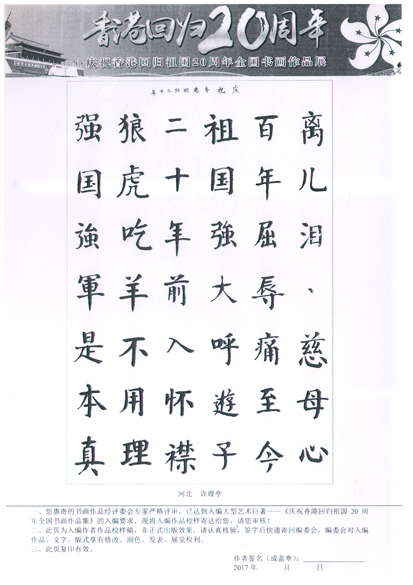 香港回归20周年
庆祝香港回归祖国20周年全国书画作品展
庆祝香港回归二十年
离儿泪、慈母心
百年屈辱痛至今
祖国強大呼遊子
二十年前入怀襟
狼虎吃羊不用理
强国強軍是本真
河北 许理亭
一、您惠寄的书画作品经评委会专家严格评审,已达到入编大型艺术巨著——《庆祝香港回归祖国 20 周
年全国书画作品集》的入编要求,现将入编作品校样寄达给您,请您审核!
二、此页为入编作者作品校样稿,非正式出版效果,请认真核验,签字后快递寄回编委会,编委会对入编
作品、文字、版式享有修改、润色、发表、展览权利。
三、此页复印有效。
作者签名(或盖章):
2017 年 月 日